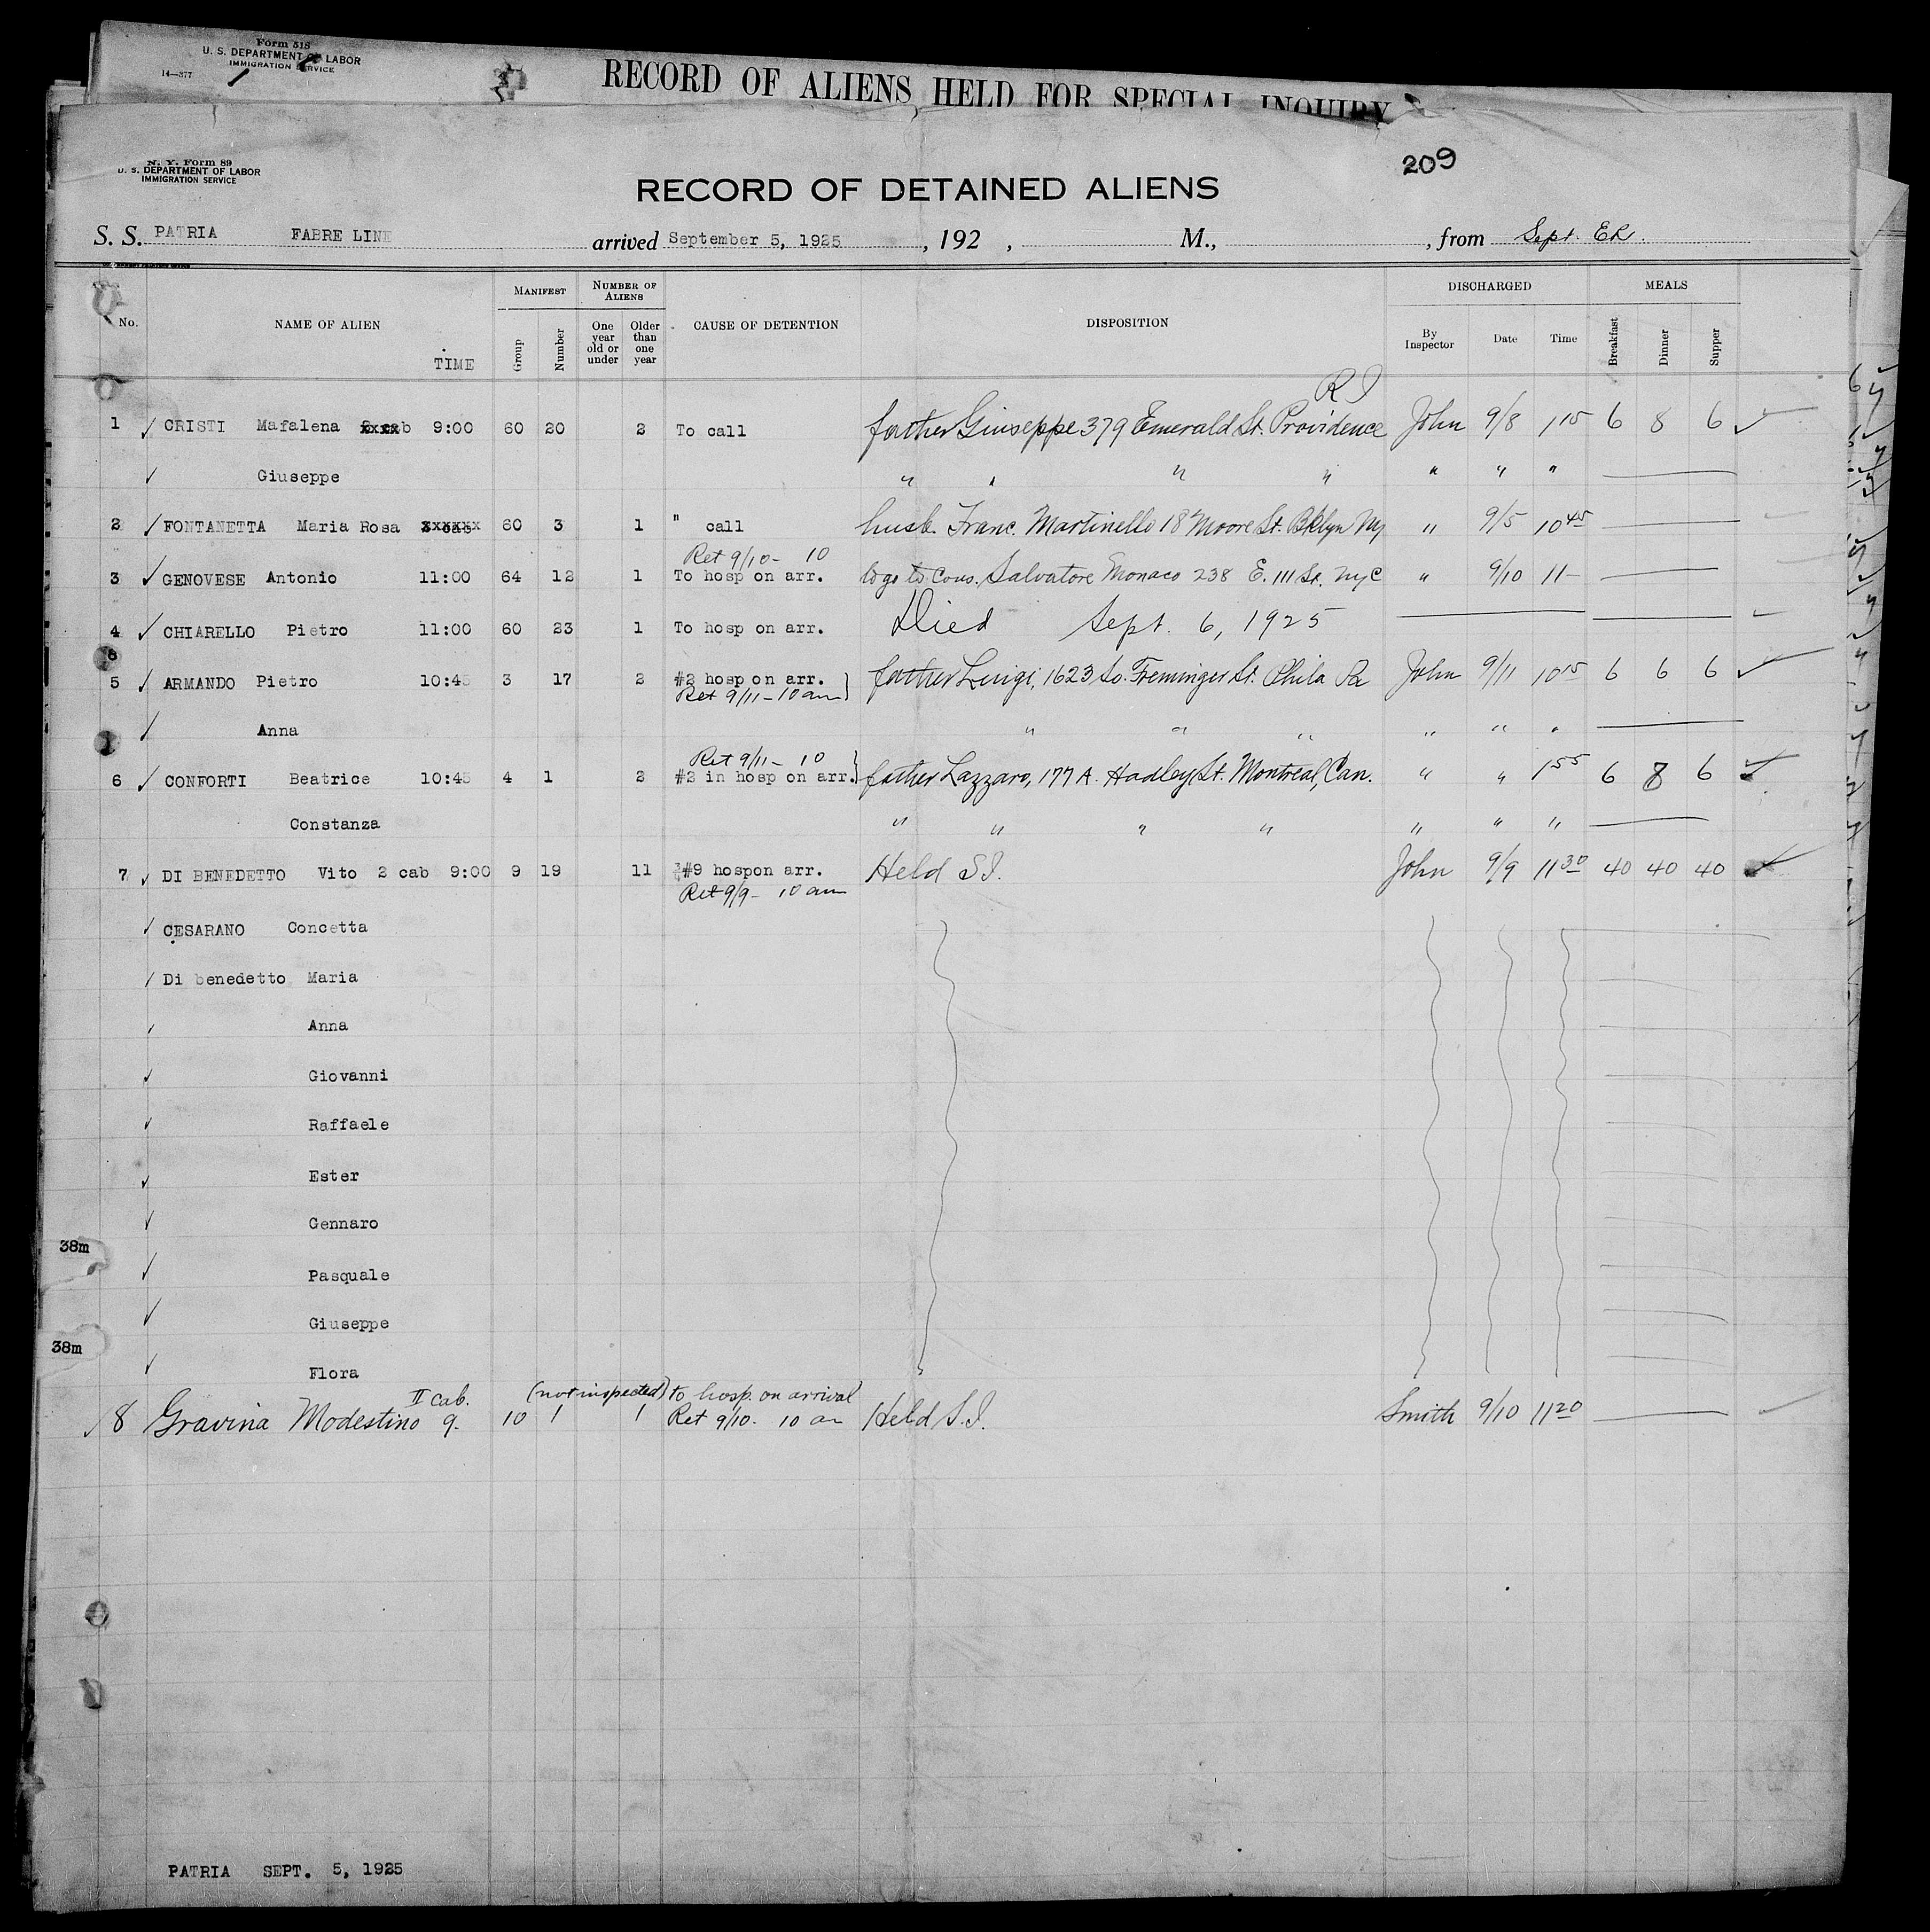 Form 518
U. S. DEPARTMENT OF LABOR
IMMIGRATION SERVICE
14—377
RECORD OF ALIENS HELD FOR SPECIAL INQUIRY
209
N. Y. Form 89
U. S. DEPARTMENT OF LABOR
IMMIGRATION SERVICE
RECORD OF DETAINED ALIENS
S. S. PATRIA FABRE LINE arrived September 5, 1925, 192 , M., , from Sept. ER.
No. NAME OF ALIEN TIME MANIFEST Group Number NUMBER OF ALIENS One year old or under Older than one year CAUSE OF DETENTION DISPOSITION DISCHARGED By Inspector Date Time MEALS Breakfast Dinner Supper
R I
1 CRISTI Mafalena 9:00 60 20 2 To call father Giuseppe 379 Emerald St. Providence John 9/8 1 15 6 8 6
Giuseppe " " " " " " "
2 FONTANETTA Maria Rosa 60 3 1 " call husb. Franc. Martinello 18 Moore St. Bklyn Ny " 9/5 10 45
Ret 9/10 - 10
3 GENOVESE Antonio 11:00 64 12 1 To hosp on arr. to go to cous. Salvatore Monaco 238 E. 111 St. NyC " 9/10 11 -
4 CHIARELLO Pietro 11:00 60 23 1 To hosp on arr. Died Sept. 6, 1925
5 ARMANDO Pietro 10:45 3 17 2 #2 hosp on arr. father Luigi, 1623 So. Freminger St. Phila Pa John 9/11 10 15 6 6 6
Ret 9/11 - 10 am
Anna " " " " " "
Ret 9/11 - 10
6 CONFORTI Beatrice 10:45 4 1 2 #2 in hosp on arr. father Lazzaro, 177 A. Hadley St. Montreal, Can. " " 1 55 6 8 6
Constanza " " " " " " "
7 DI BENEDETTO Vito 2 cab 9:00 9 19 11 #9 hospon arr. Held S.I. John 9/9 11 30 40 40 40
Ret 9/9 - 10 am
CESARANO Concetta
Di benedetto Maria
Anna
Giovanni
Raffaele
Ester
Gennaro
38m
Pasquale
Giuseppe
38m
Flora
II cab. (not inspected) to hosp. on arrival
8 Gravina Modestino 9. 10 1 1 Ret 9/10. 10 am Held S.I. Smith 9/10 11 20
PATRIA SEPT. 5, 1925